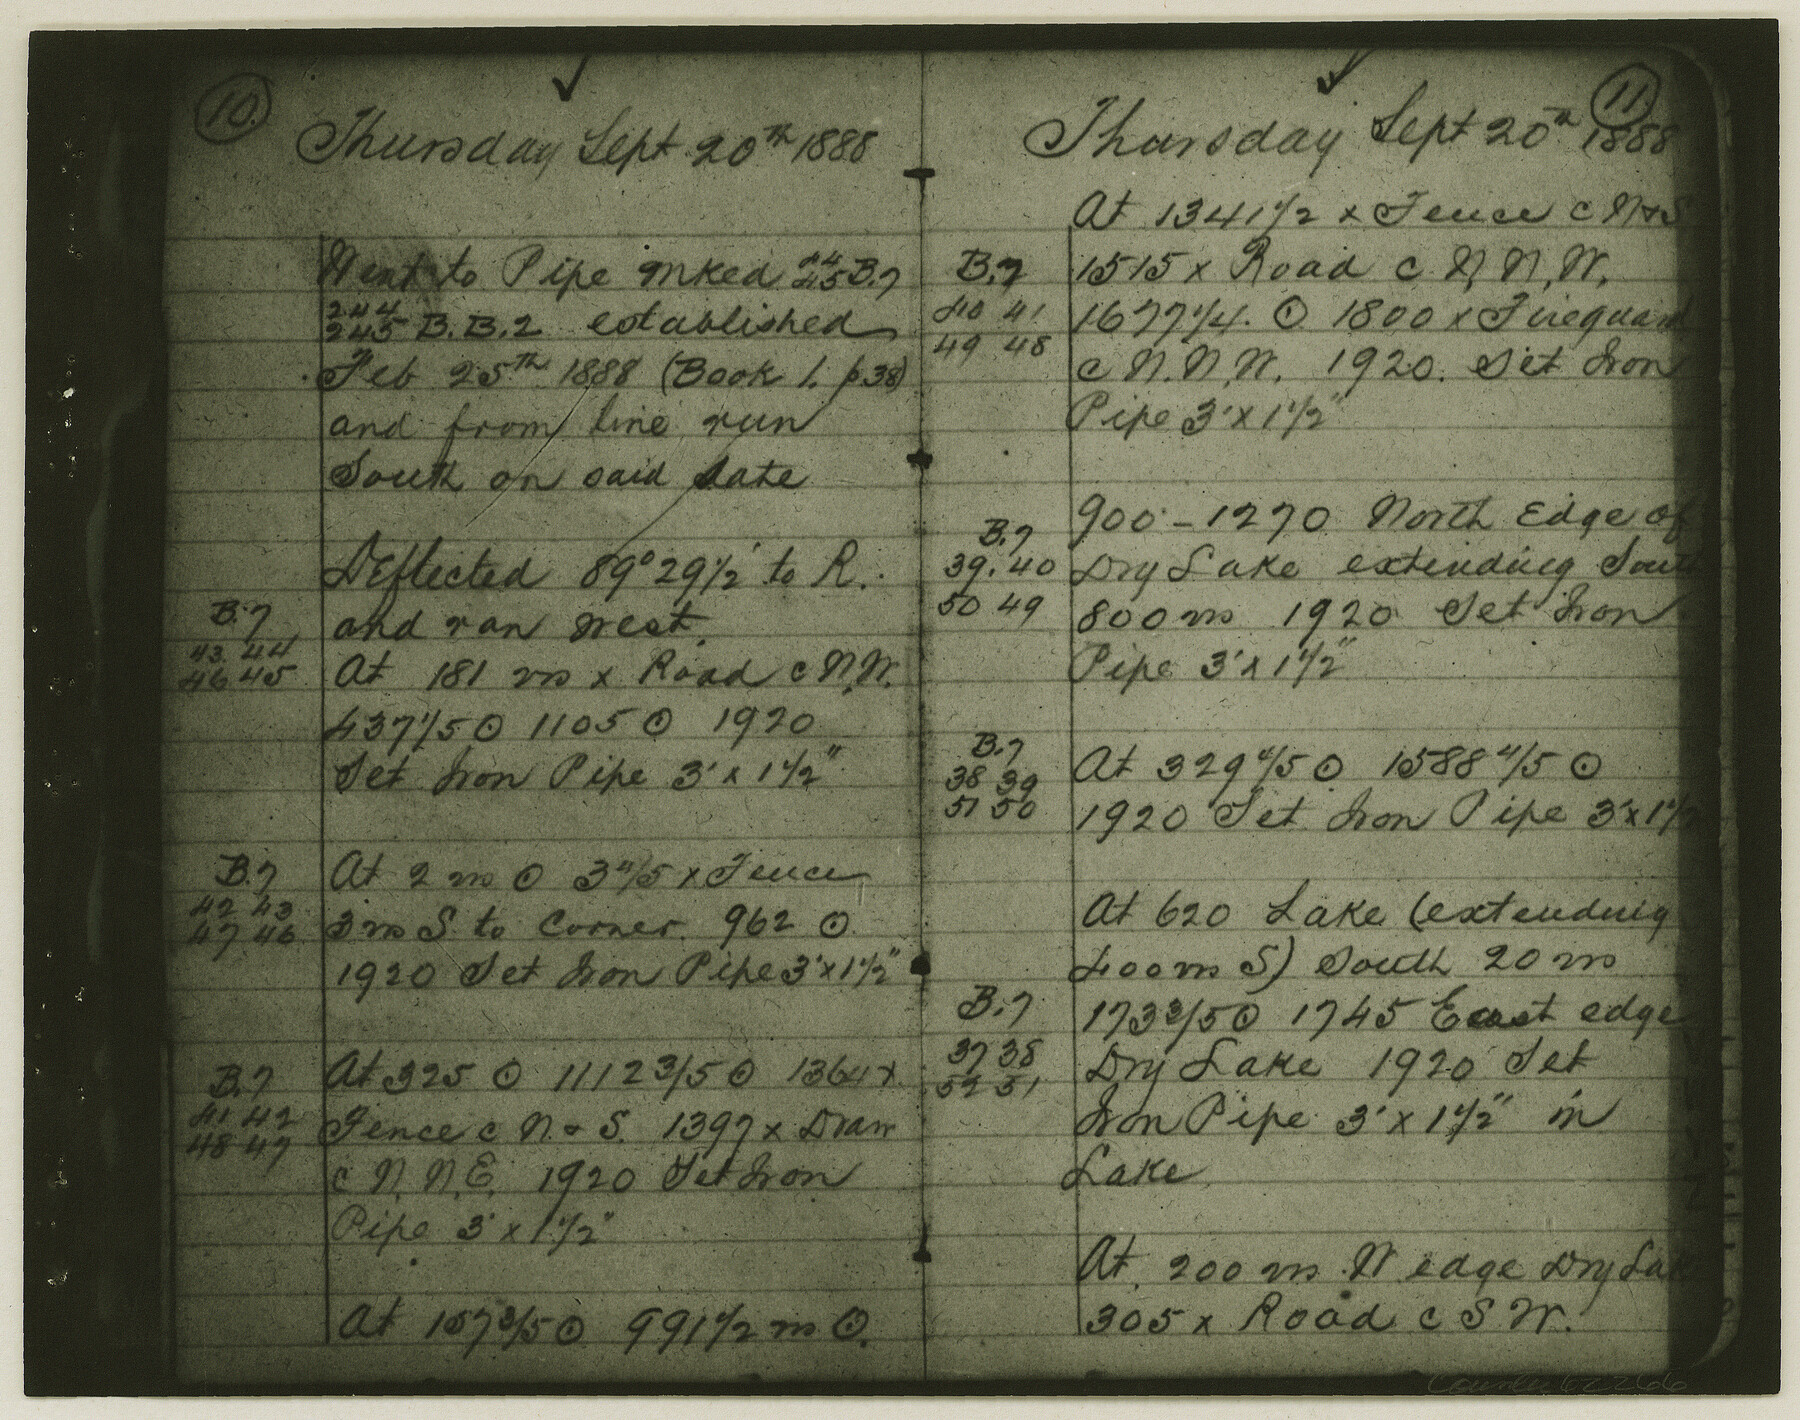 10.
Thursday Sept 20th 1888
Went to Pipe mked 44/45 B.7
244/245 B.B.2 established
Feb 25th 1888 (Book 1. p.38)
and from line run
South on said date
Deflected 89°29 1/2' to R.
B.7 and ran West.
43. 44 At 181 vrs x Road c N.W.
46 45
437 1/5 ⊙ 1105 ⊙ 1920
Set Iron Pipe 3' x 1 1/2"
B.7 At 2 vrs ⊙ 3 4/5 x Fence
42 43
47 46 3 vrs S. to Corner. 962 ⊙
1920 Set Iron Pipe 3' x 1 1/2"
B.7 At 325 ⊙ 1112 3/5 ⊙ 1364 x
41 42 Fence c N. & S. 1397 x Draw
48 47
c N. N.E. 1920 Set Iron
Pipe 3' x 1 1/2"
At 157 3/5 ⊙ 991 1/2 vrs ⊙.
11.
Thursday Sept 20th 1888
At 1341 1/2 x Fence c N & S
B.7 1515 x Road c N. N.W.
40 41 1677 1/4. ⊙ 1800 x Fireguard
49 48 c N.N.W. 1920. Set Iron
Pipe 3' x 1 1/2"
900 - 1270 North Edge of
B.7
39. 40 Dry Lake extending South
50 49 800 vrs 1920 Set Iron
Pipe 3' x 1 1/2"
B.7
38 39 At 329 4/5 ⊙ 1588 4/5 ⊙
51 50 1920 Set Iron Pipe 3' x 1 1/2
At 620 Lake (extending
400 vrs S) South 20 vrs
B.7 173 3/5 ⊙ 1745 East edge
37 38 Dry Lake 1920 Set
52 51
Iron Pipe 3' x 1 1/2" in
Lake
At. 200 vrs W edge Dry Lake
305 x Road c S.W.